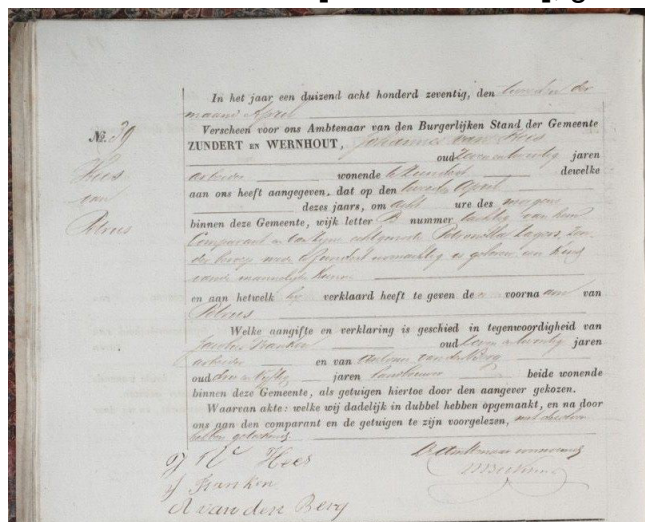 In het jaar een duizend acht honderd zeventig, den tweeden der
maand April
Verscheen voor ons Ambtenaar van den Burgerlijken Stand der Gemeente
No. 39
ZUNDERT EN WERNHOUT, Johannes van Hees
oud zeven en twintig jaren
Hees
arbeider wonende te Zundert dewelke
van
aan ons heeft aangegeven, dat op den tweeden April
dezes jaars, om acht ure des morgens
Petrus
binnen deze Gemeente, wijk letter B nummer tachtig van hem
Comparant en van zijne echtgenoote Petronella
Zundert woonachtig is geboren een Kind
van de mannelijke kunne
en aan hetwelk hij verklaard heeft te geven de voornaam van
Petrus
Welke aangifte en verklaring is geschied in tegenwoordigheid van
oud zeven en twintig jaren
arbeider en van van den Berg
oud jaren landbouwer beide wonende
binnen deze Gemeente, als getuigen hiertoe door den aangever gekozen.
Waarvan akte: welke wij dadelijk in dubbel hebben opgemaakt, en na door
ons aan den comparant en de getuigen te zijn voorgelezen, met dezelve
hebben geteekend
Hees
J Franken
A van den Berg